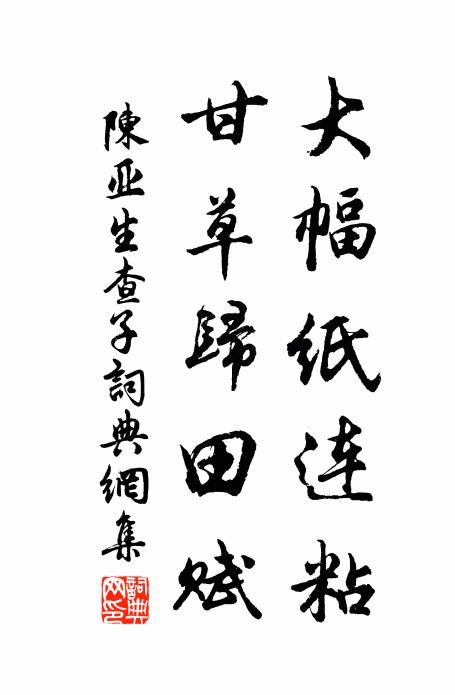 大幅紙连粘
甘草歸田赋
陳亚生查子詞典網集
詞典网印